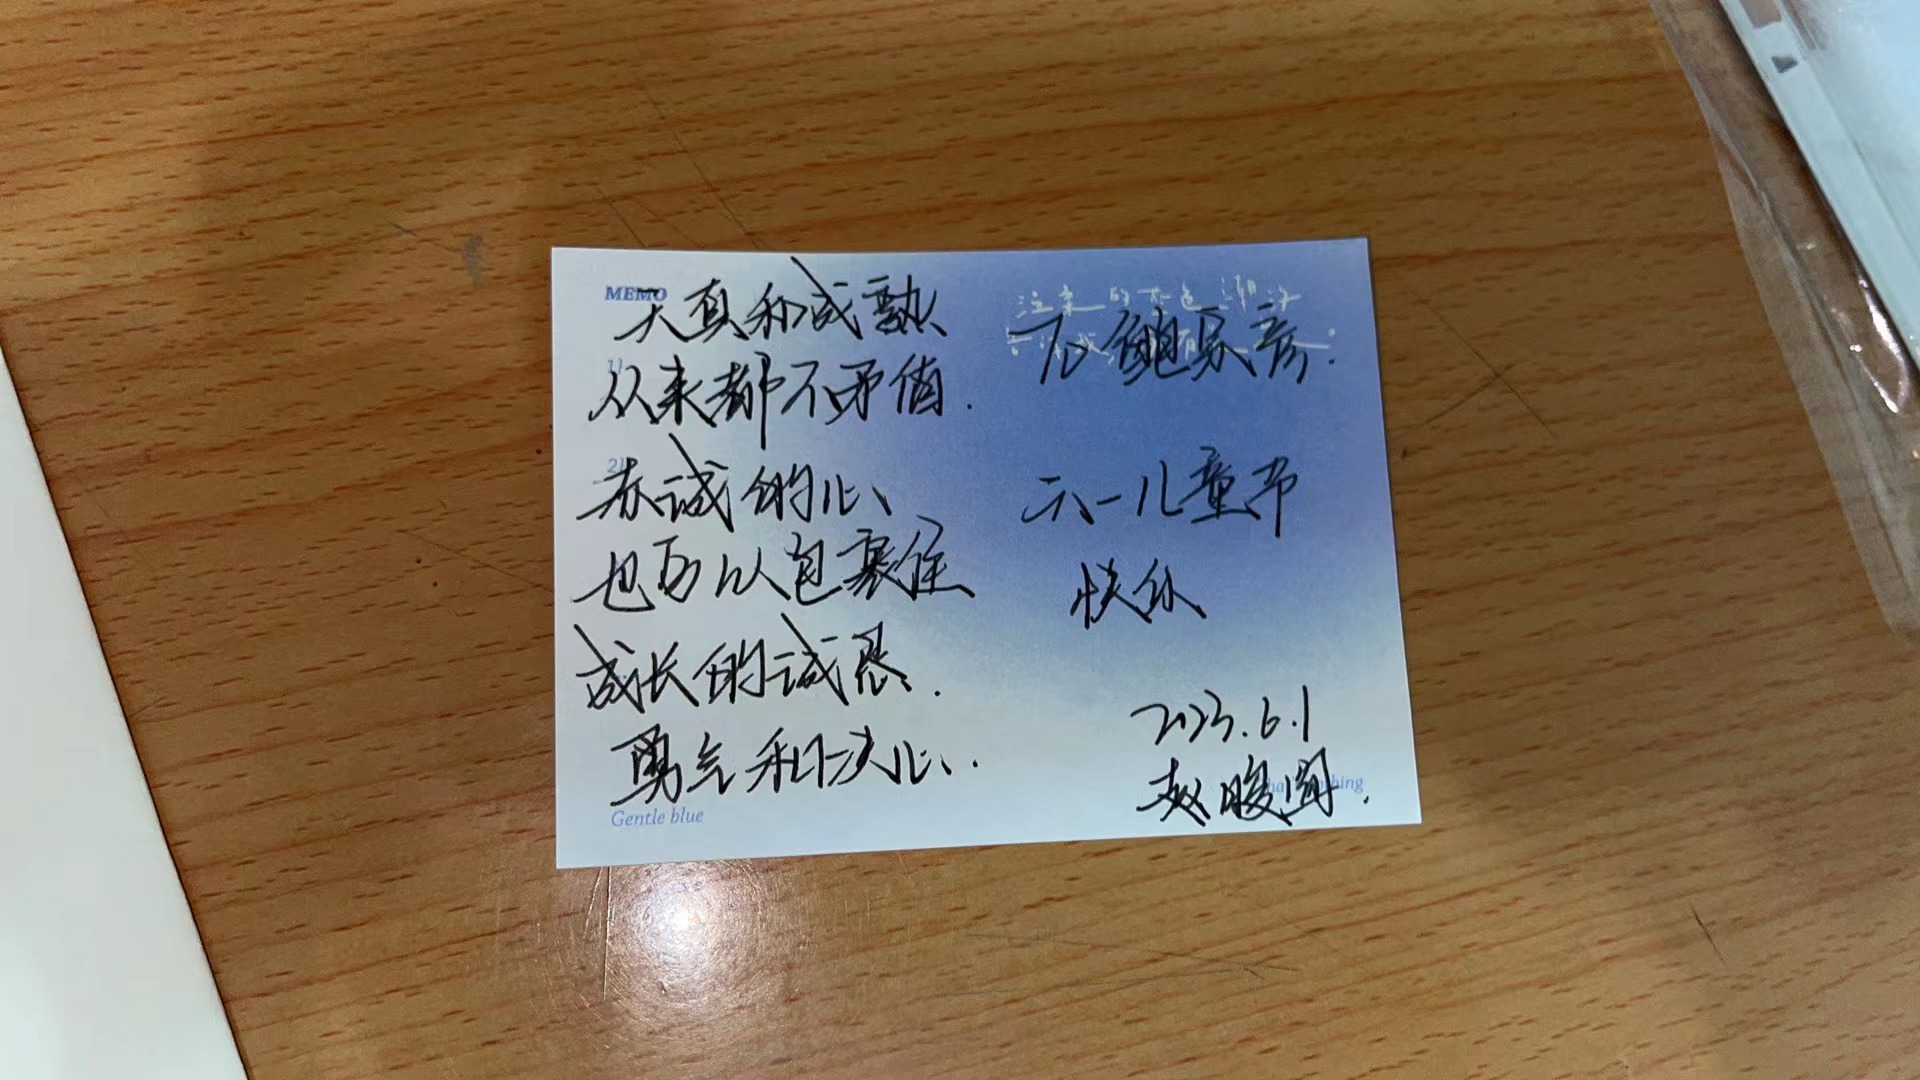 MEMO
天真和成熟
从来都不矛盾.
赤诚的心
也可以包裹住
成长的诚恳.
勇气和决心.
Gentle blue
六一儿童节
快乐
2023.6.1
赵